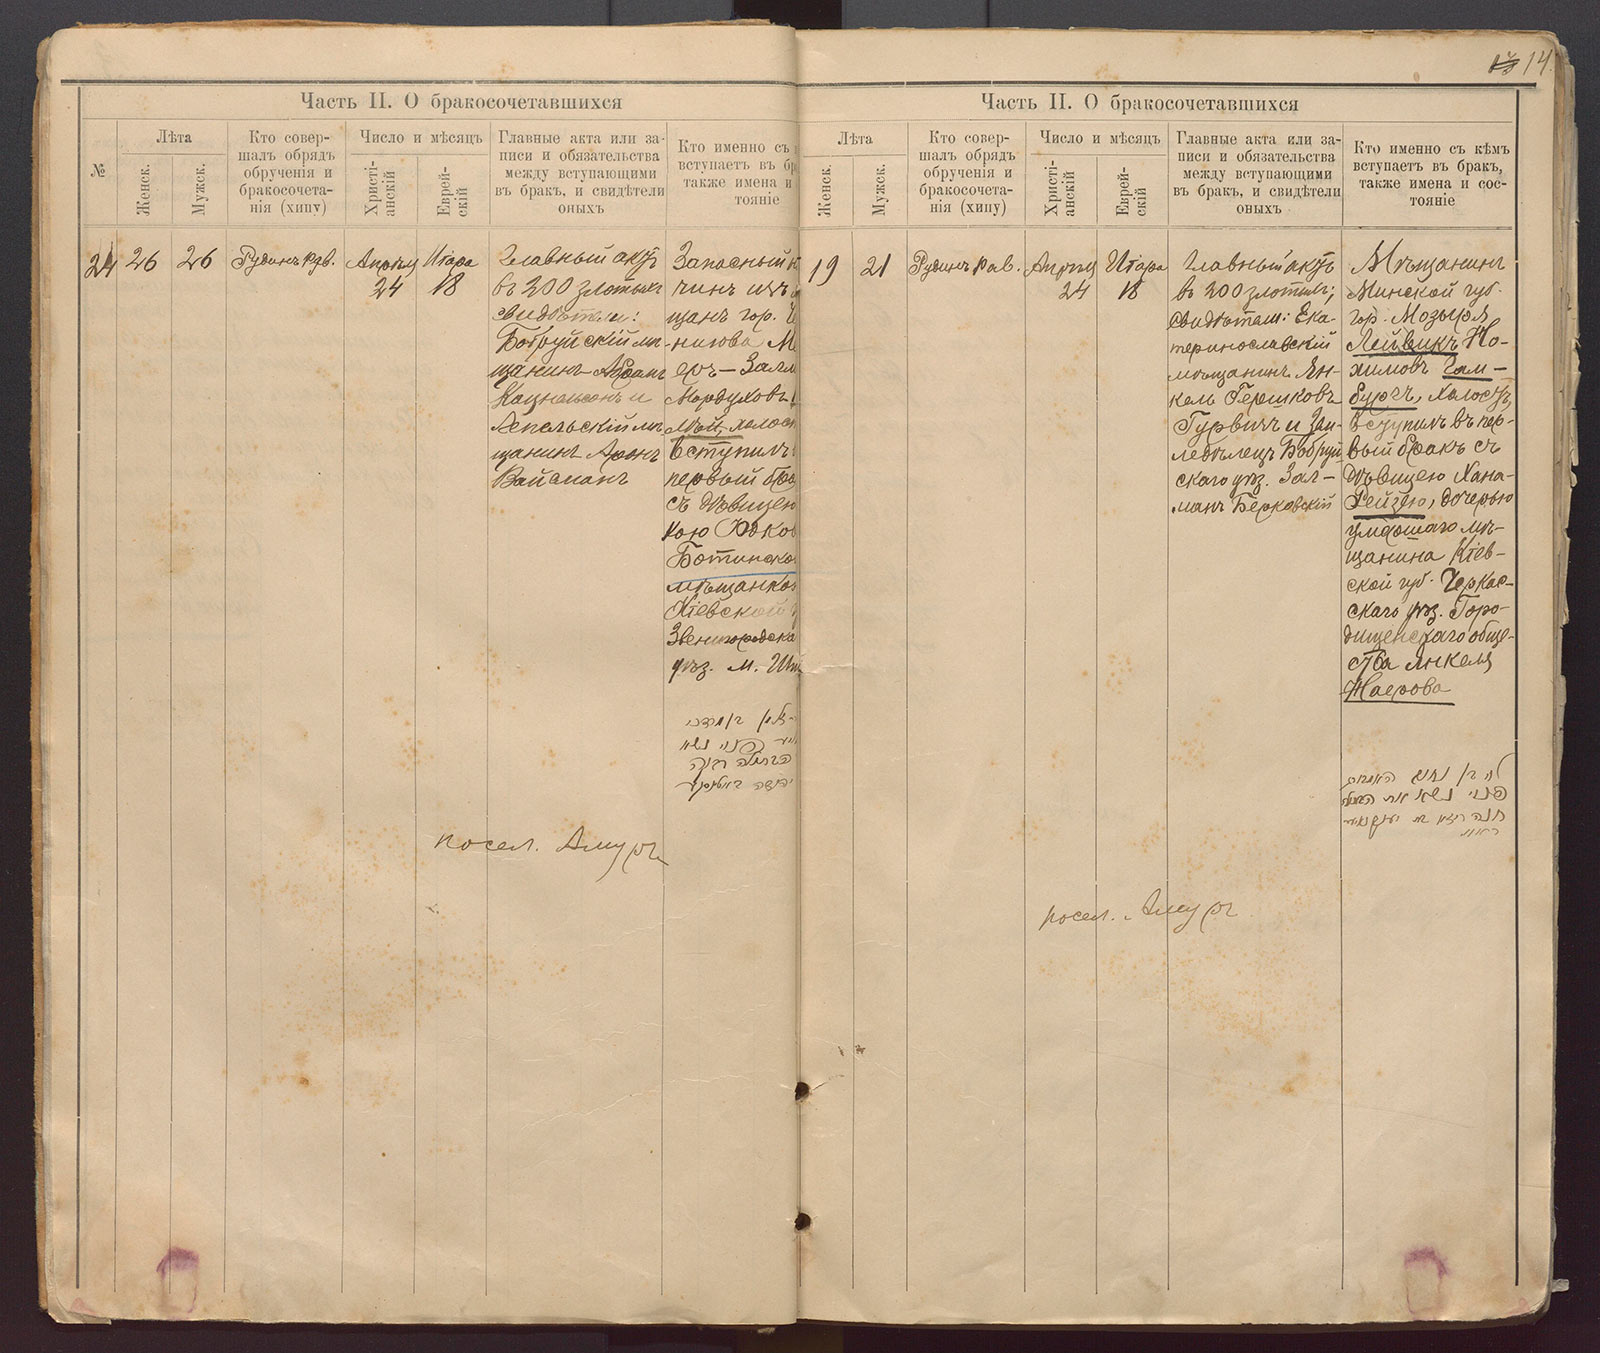 14
Часть II. О бракосочетавшихся
№
Лѣта
Женск.
Мужск.
Кто совер-
шалъ обрядъ
обрученія и
бракосочета-
нія (хипу)
Число и мѣсяцъ
Христі-
анскій
Еврей-
скій
Главные акта или за-
писи и обязательства
между вступающими
въ бракъ, и свидѣтели
оныхъ
Кто именно съ
вступаетъ въ бр
также имена и
тояніе
24
26
26
Рубинъ рав.
Апрѣля
24
Иіара
18
Главный актъ
въ 200 злотыхъ
свидѣтели:
Бобруйскій мѣ-
щанинъ Абрамъ
Кацнельсонъ и
Лепельскій мѣ-
щанинъ Аронъ
Вайсманъ
Запасный
чинъ изъ
щанъ гор.
нигова М
еръ-Залм
Мордуховъ
холост
вступилъ
первый бра
съ дѣвицею
кою Юдков
Ботинско
мѣщанкою
Кіевской
Звенигородска
уѣз. м. Шп
посел. Амуръ
Часть II. О бракосочетавшихся
Лѣта
Женск.
Мужск.
Кто совер-
шалъ обрядъ
обрученія и
бракосочета-
нія (хипу)
Число и мѣсяцъ
Христі-
анскій
Еврей-
скій
Главные акта или за-
писи и обязательства
между вступающими
въ бракъ, и свидѣтели
оныхъ
Кто именно съ кѣмъ
вступаетъ въ бракъ,
также имена и сос-
тояніе
19
21
Рубинъ рав.
Апрѣля
24
Иіара
18
Главный актъ
въ 200 злотыхъ;
свидѣтели: Ека-
теринославскій
мѣщанинъ Ян-
кель Гершковъ
Гурвичъ и Зем-
ледѣлецъ Бобруй
скаго уѣз. Зал-
манъ Берковскій
Мѣщанинъ
Минской губ.
гор. Мозыря
Лейвикъ Но-
химовъ Гам-
бургъ, холостъ,
вступилъ въ пер-
вый бракъ съ
дѣвицею Хана-
Рейзею, дочерью
умершаго мѣ-
щанина Кіев-
ской губ. Черкас-
скаго уѣз. Горо-
дищенскаго обще-
ства Янкеля
Маерова
посел. Амуръ